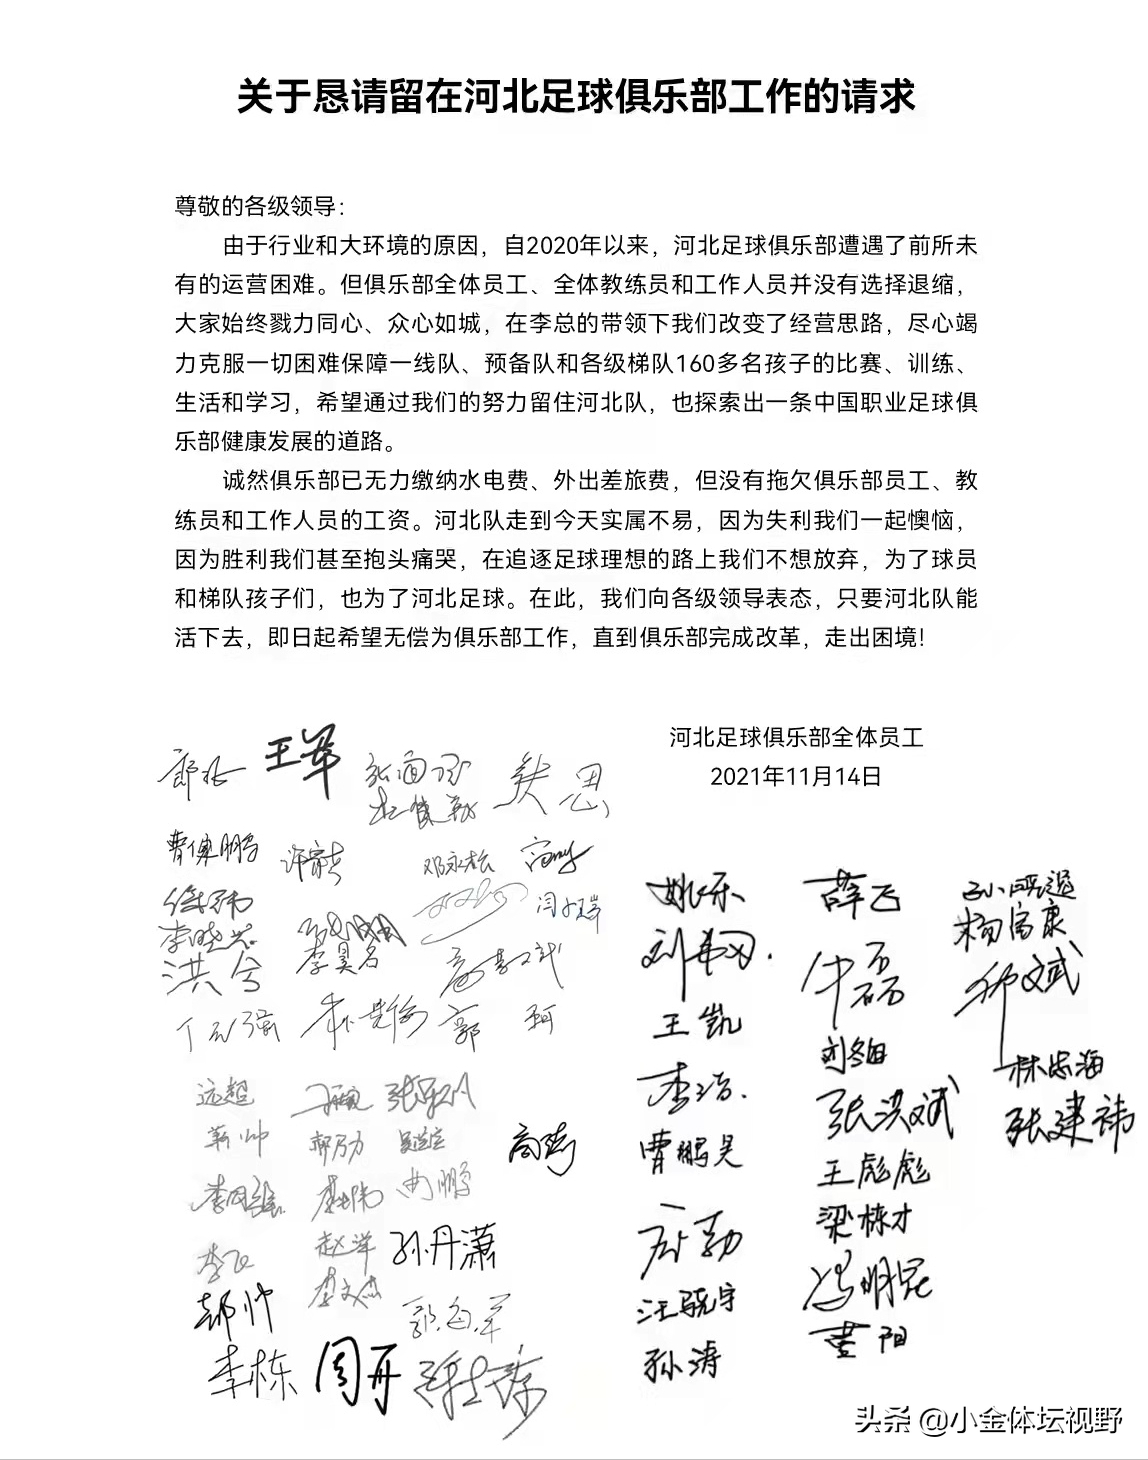 关于恳请留在河北足球俱乐部工作的请求
尊敬的各级领导：
由于行业和大环境的原因，自2020年以来，河北足球俱乐部遭遇了前所未
有的运营困难。但俱乐部全体员工、全体教练员和工作人员并没有选择退缩，
大家始终戮力同心、众心如城，在李总的带领下我们改变了经营思路，尽心竭
力克服一切困难保障一线队、预备队和各级梯队160多名孩子的比赛、训练、
生活和学习，希望通过我们的努力留住河北队，也探索出一条中国职业足球俱
乐部健康发展的道路。
诚然俱乐部已无力缴纳水电费、外出差旅费，但没有拖欠俱乐部员工、教
练员和工作人员的工资。河北队走到今天实属不易，因为失利我们一起懊恼，
因为胜利我们甚至抱头痛哭，在追逐足球理想的路上我们不想放弃，为了球员
和梯队孩子们，也为了河北足球。在此，我们向各级领导表态，只要河北队能
活下去，即日起希望无偿为俱乐部工作，直到俱乐部完成改革，走出困境!
河北足球俱乐部全体员工
2021年11月14日
王军
邓永松
李昊名
洪兮
郭 珂
远超
曲鹏
赵洋 孙丹潇
李飞
李文杰
郝帅
李栋 周冉
姚乐
王凯
李浩
曹鹏昊
汪骁宇
孙涛
薛飞
牛磊
刘冬甜
张洪斌
王彪彪
梁栋才
冯明冠
董阳
杨富康
林忠海
张建祎
头条 @小金体坛视野